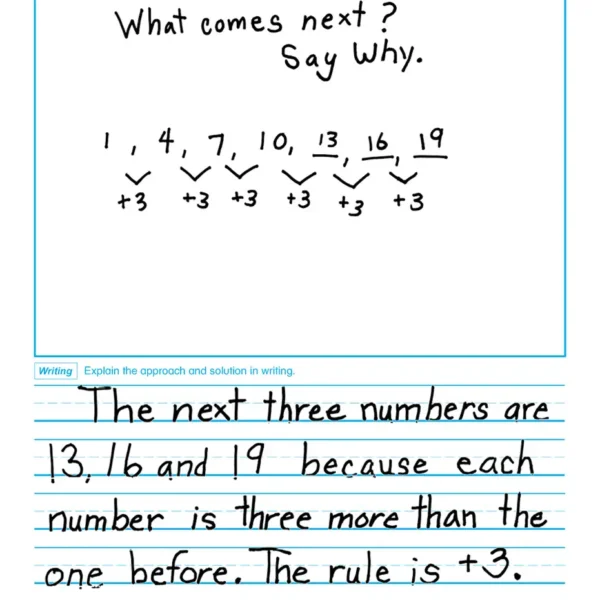 What comes next?
Say Why.
1, 4, 7, 10, 13, 16, 19
+3 +3 +3 +3 +3 +3
Writing Explain the approach and solution in writing.
The next three numbers are
13, 16 and 19 because each
number is three more than the
one before. The rule is +3.